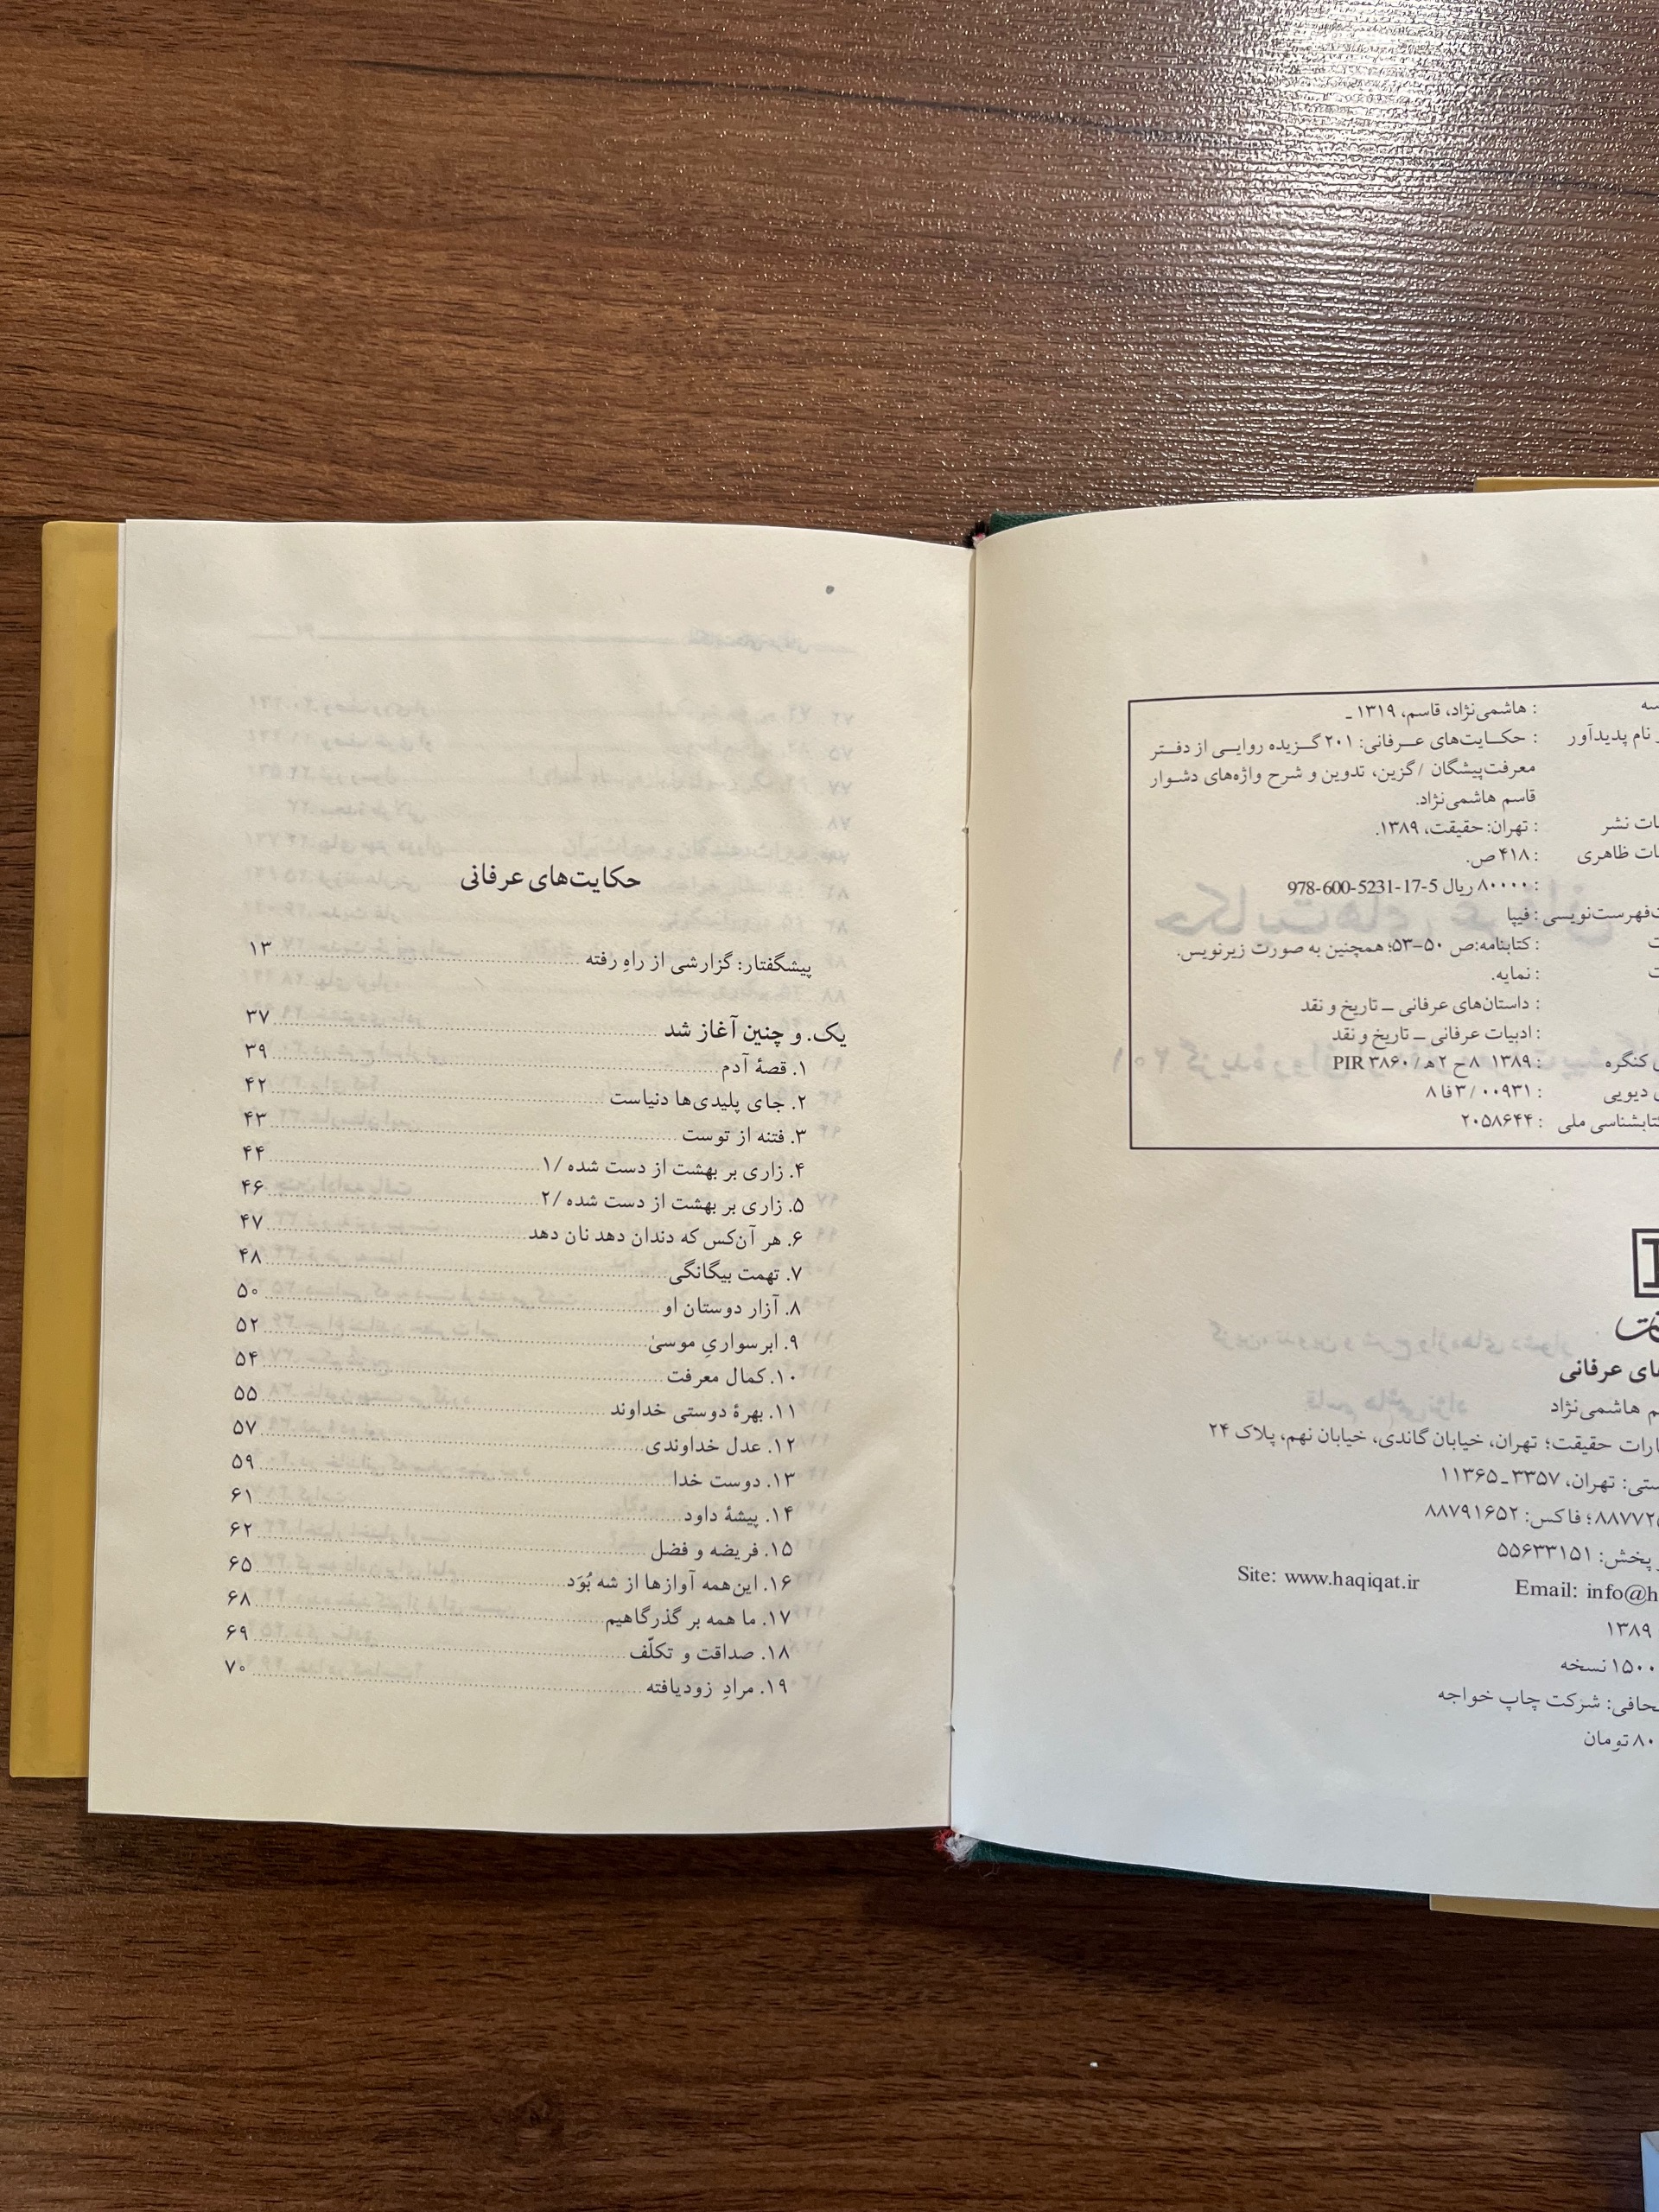 : هاشمی‌نژاد، قاسم، ۱۳۱۹ ـ
نام پدیدآور : حکایت‌های عرفانی: ۲۰۱ گزیده روایی از دفتر
معرفت‌پیشگان / گزین، تدوین و شرح واژه‌های دشوار
قاسم هاشمی‌نژاد.
نشر : تهران: حقیقت، ۱۳۸۹.
ظاهری : ۴۱۸ ص.
: ۸۰۰۰۰ ریال 978-600-5231-17-5
فهرست‌نویسی : فیپا
: کتابنامه:ص ۵۰-۵۳؛ همچنین به صورت زیرنویس.
: نمایه.
: داستان‌های عرفانی ــ تاریخ و نقد
: ادبیات عرفانی ــ تاریخ و نقد
کنگره : ۱۳۸۹ ۸ح ۲ه‍ / PIR ۳۸۶۰
دیویی : ۳/۰۰۹۳۱فا۸
کتابشناسی ملی : ۲۰۵۸۶۴۴
عرفانی
هاشمی‌نژاد
حقیقت؛ تهران، خیابان گاندی، خیابان نهم، پلاک ۲۴
تهران، ۳۳۵۷ ـ ۱۱۳۶۵
فاکس: ۸۸۷۹۱۶۵۲
پخش: ۵۵۶۳۳۱۵۱
Site: www.haqiqat.ir Email: info@h
۱۳۸۹
۱۵۰۰ نسخه
شرکت چاپ خواجه
تومان
حکایت‌های عرفانی
پیشگفتار: گزارشی از راهِ رفته ۱۳
یک. و چنین آغاز شد ۳۷
۱. قصهٔ آدم ۳۹
۲. جای پلیدی‌ها دنیاست ۴۲
۳. فتنه از توست ۴۳
۴. زاری بر بهشت از دست شده /۱ ۴۴
۵. زاری بر بهشت از دست شده /۲ ۴۶
۶. هر آن‌کس که دندان دهد نان دهد ۴۷
۷. تهمت بیگانگی ۴۸
۸. آزار دوستان او ۵۰
۹. ابرسواریِ موسیٰ ۵۲
۱۰. کمال معرفت ۵۴
۱۱. بهرهٔ دوستی خداوند ۵۵
۱۲. عدل خداوندی ۵۷
۱۳. دوست خدا ۵۹
۱۴. پیشهٔ داود ۶۱
۱۵. فریضه و فضل ۶۲
۱۶. این‌همه آوازها از شه بُوَد ۶۵
۱۷. ما همه بر گذرگاهیم ۶۸
۱۸. صداقت و تکلّف ۶۹
۱۹. مرادِ زودیافته ۷۰